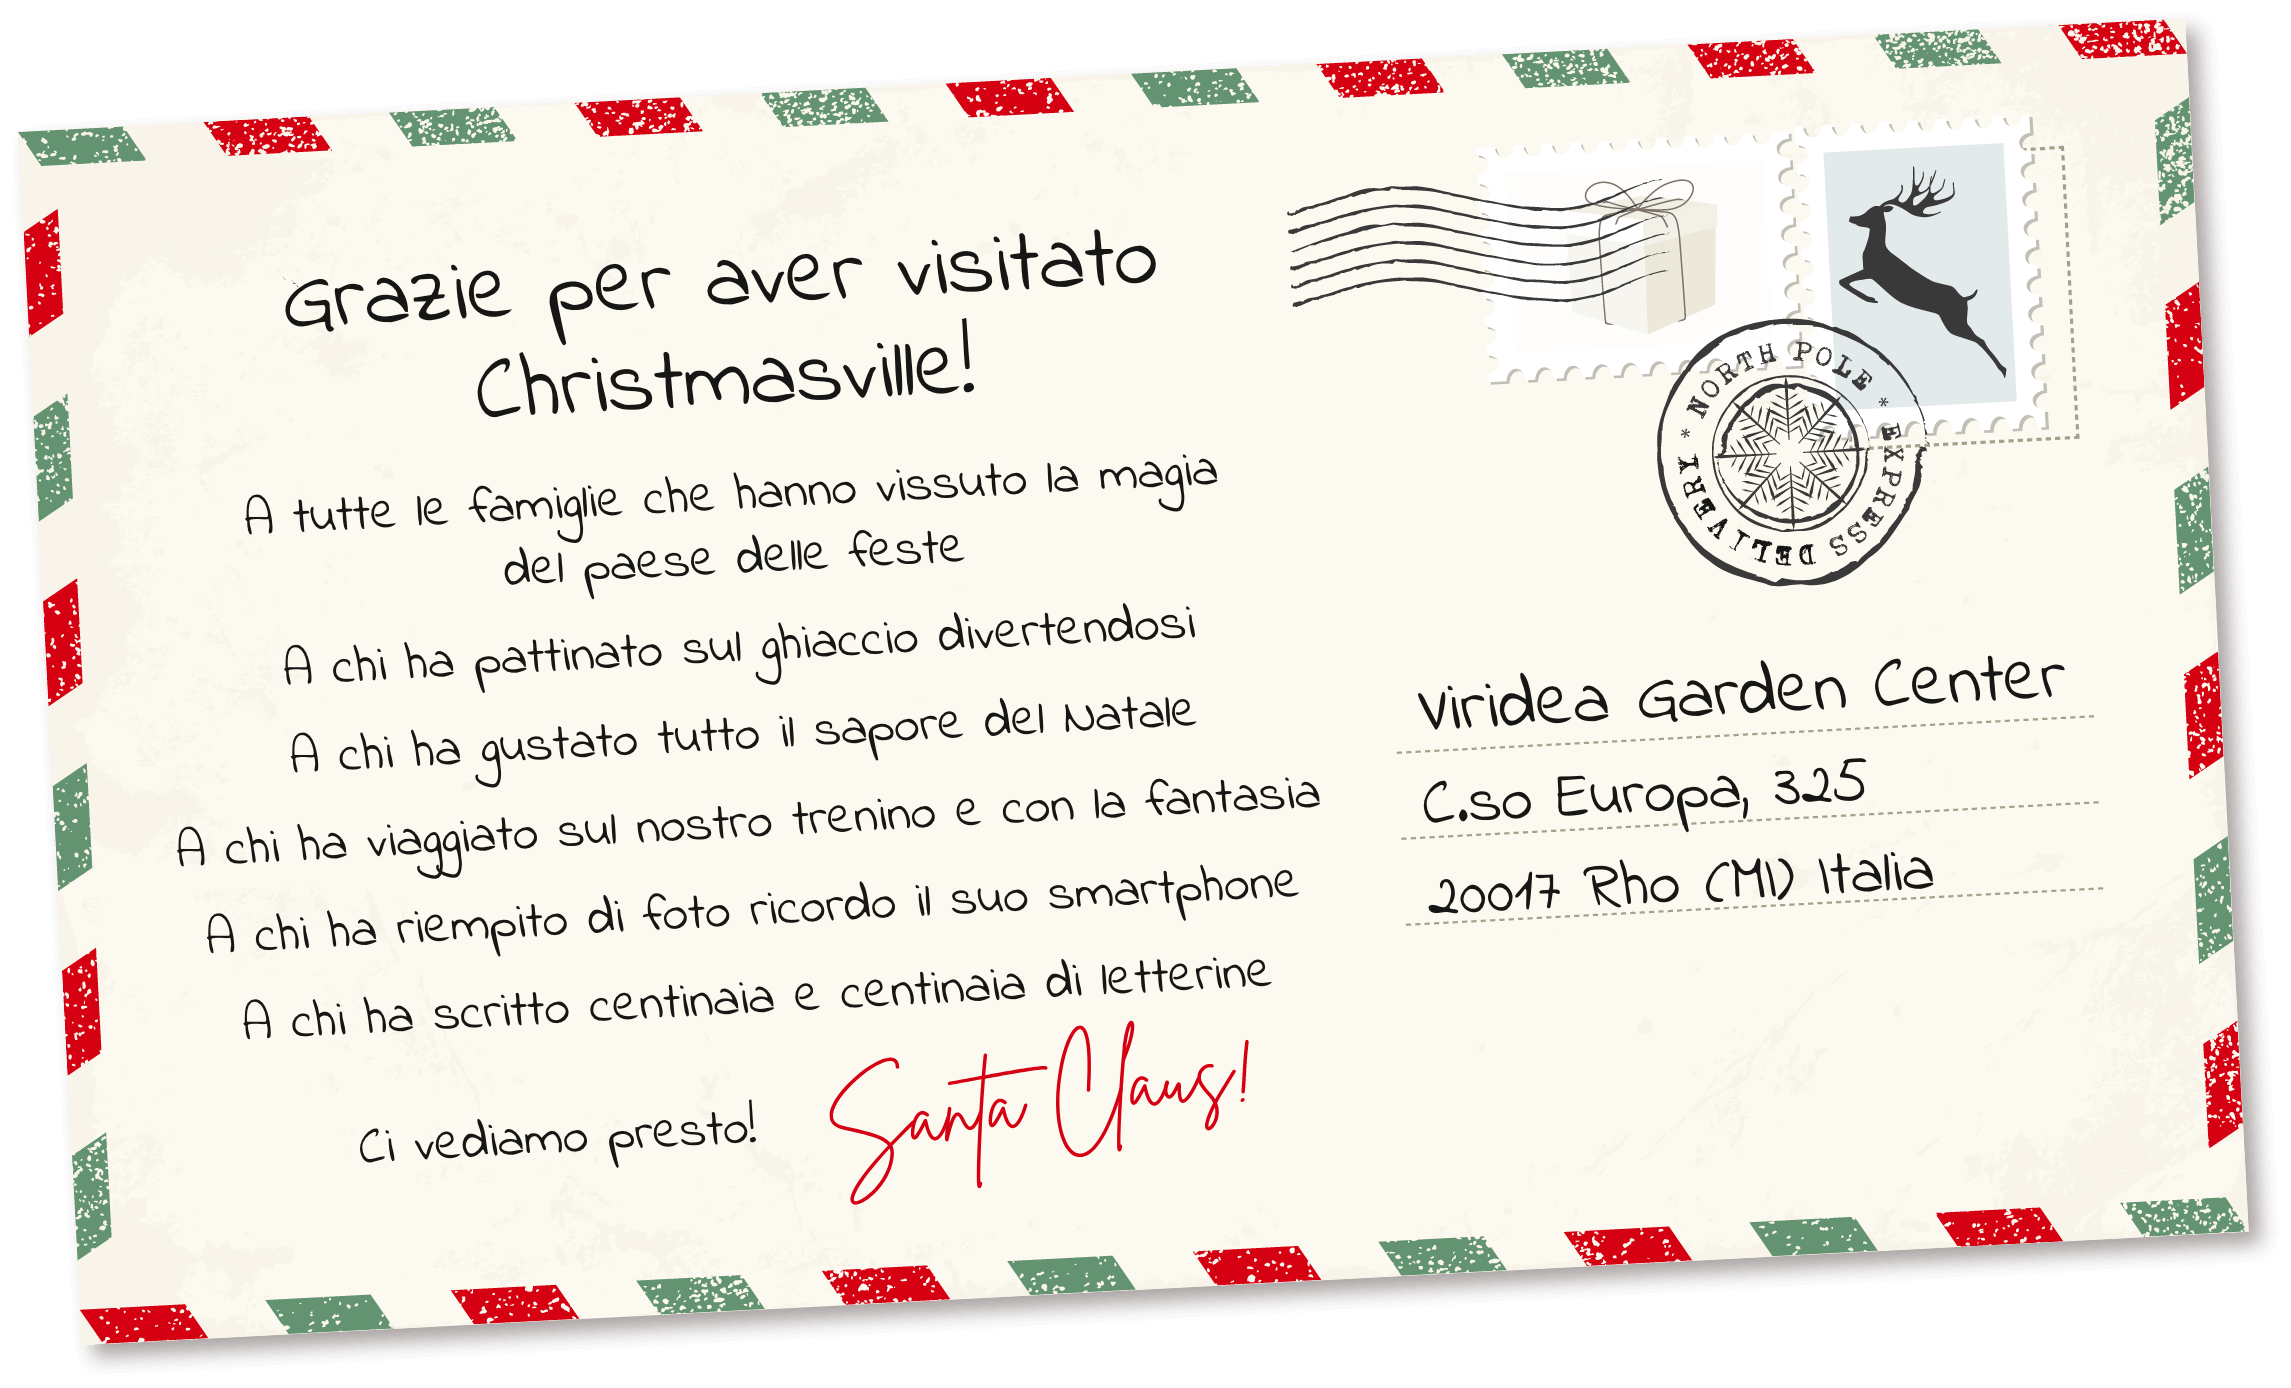 Grazie per aver visitato
Christmasville!
A tutte le famiglie che hanno vissuto la magia
del paese delle feste
A chi ha pattinato sul ghiaccio divertendosi
A chi ha gustato tutto il sapore del Natale
A chi ha viaggiato sul nostro trenino e con la fantasia
A chi ha riempito di foto ricordo il suo smartphone
A chi ha scritto centinaia e centinaia di letterine
Ci vediamo presto!
Santa Claus!
* NORTH POLE * EXPRESS DELIVERY
Viridea Garden Center
C.so Europa, 325
20017 Rho (MI) Italia